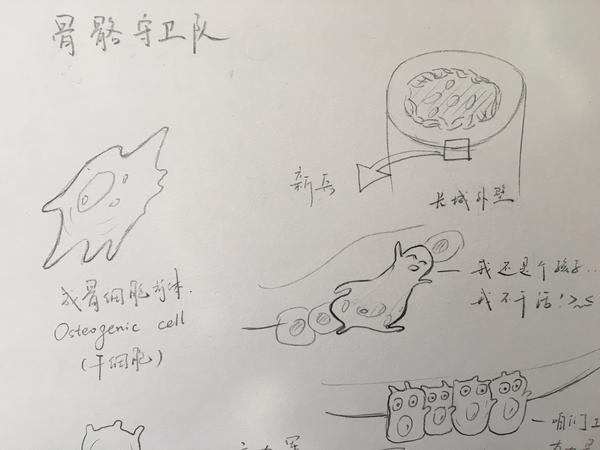 骨骼守卫队
新兵
长城外壁
成骨细胞前体.
Osteogenic cell
(干细胞)
我还是个孩子...
我不干活!>~<
咱们工